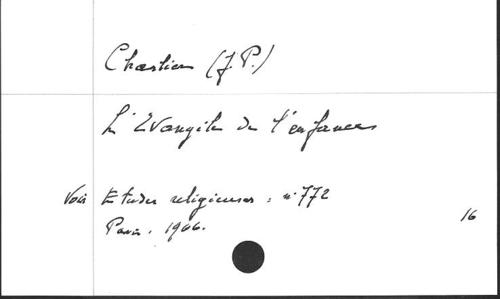 Charlier (J. P.)
L'Evangile de l'enfance
Voir Etudes religieuses : n° 772
Paris. 1966.
16